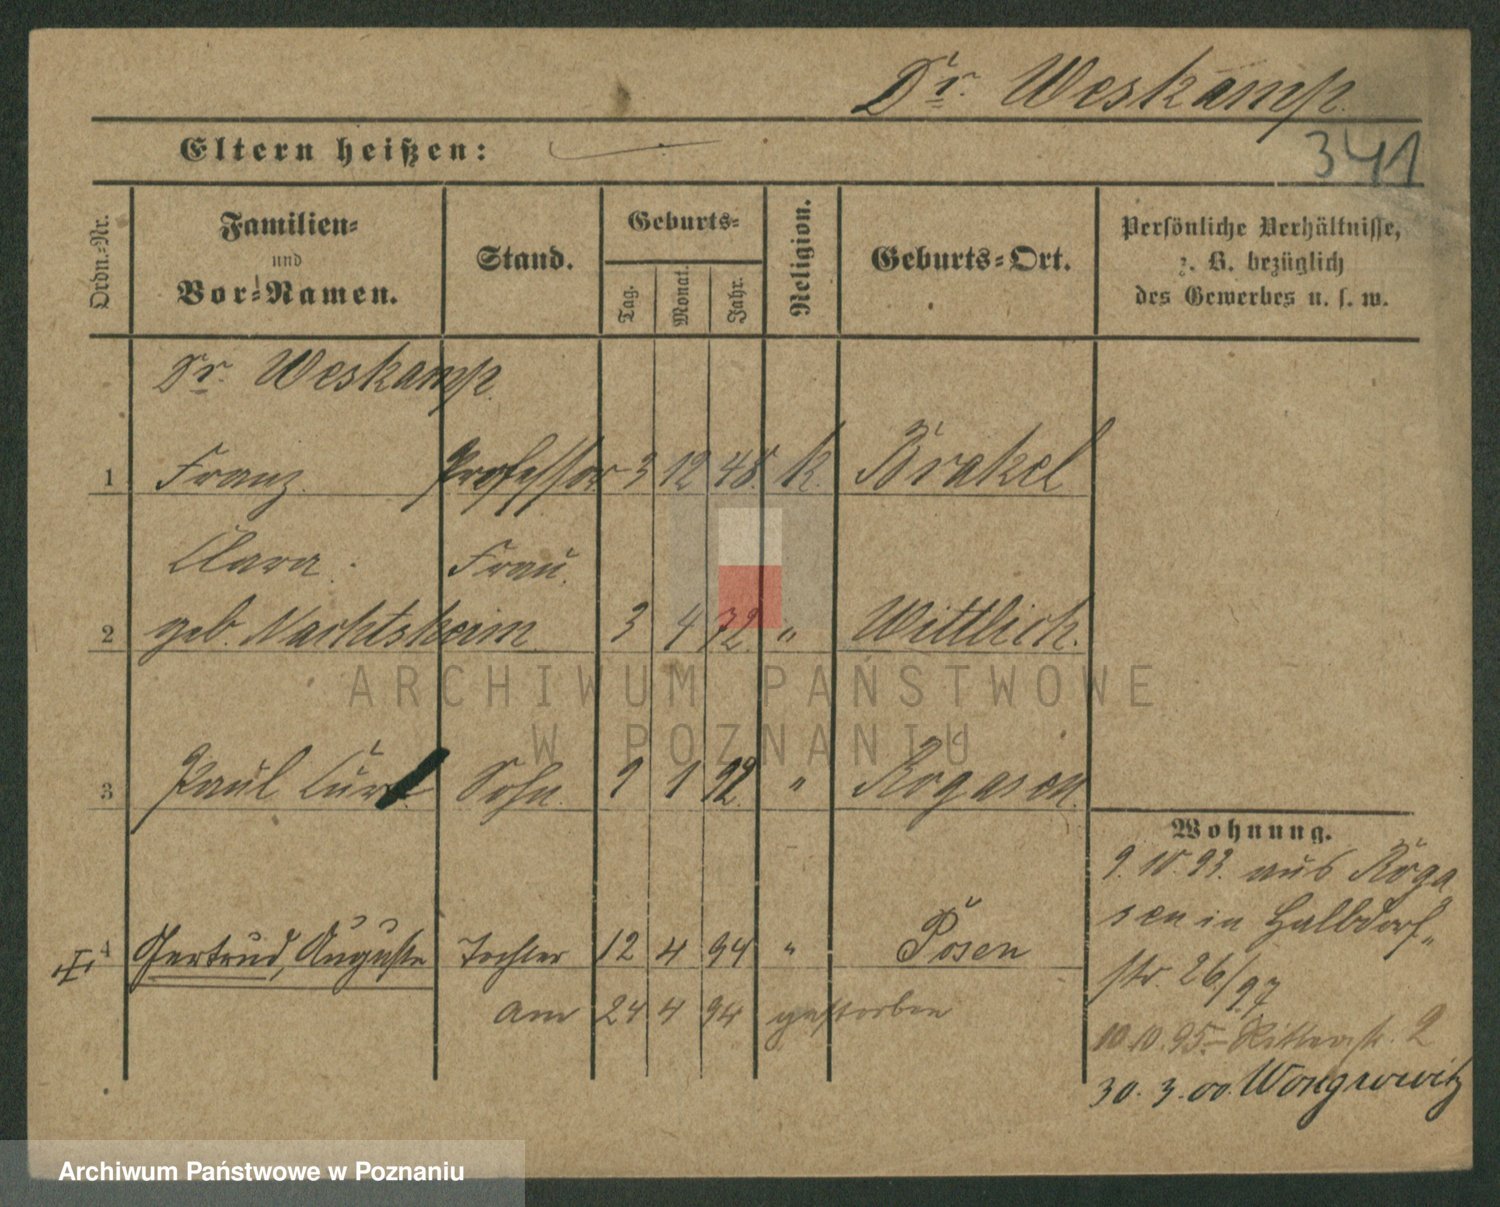 Dr. Weskamp.
341
Eltern heißen:
Ordn.-Nr.
Familien-
und
Vor-Namen.
Stand.
Geburts-
Tag.
Monat.
Jahr.
Religion.
Geburts-Ort.
Persönliche Verhältnisse,
z. B. bezüglich
des Gewerbes u. s. w.
Dr. Weskamp.
1 Franz. Professor 3 12 48. k. Brakel
Clara. Frau.
2 geb. Nachtsheim 3 4 72. " Wittlich.
3 Paul Curt Sohn. 9 1 92. " Rogasen.
4 Gertrud, Auguste Tochter 12 4 94 " Posen
am 24 4 94 gestorben
Wohnung.
9.10.93. aus Roga
sen in Halbdorf-
str. 26/27
10.10.95. Ritterstr. 2
30.3.00. Wongrowitz
ARCHIWUM PAŃSTWOWE
W POZNANIU
Archiwum Państwowe w Poznaniu